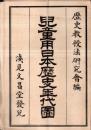 歴史教授法研究會編
兒童用日本歴史年代圖
濱見文昌堂發兌